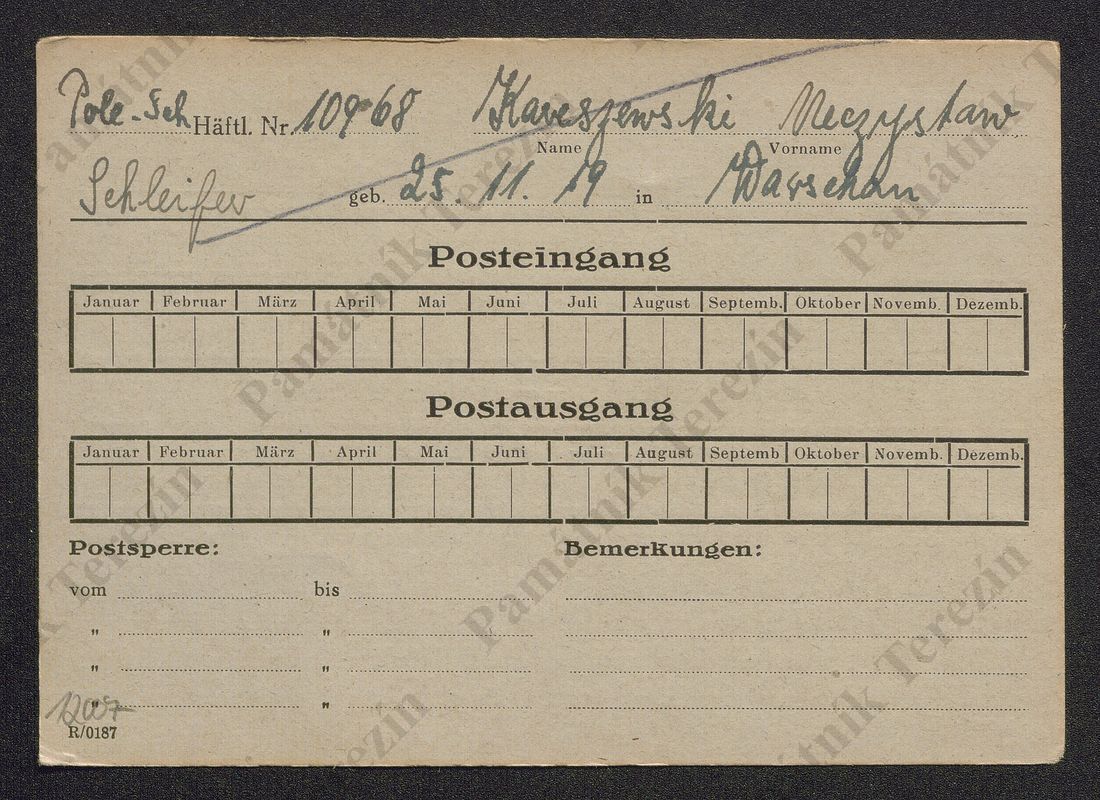 Pole - Sch Häftl. Nr. 10968 Kareszewski Meczysław
Name Vorname
Schleifer geb. 25. 11. 19 in Warschau
Posteingang
Januar Februar März April Mai Juni Juli August Septemb. Oktober Novemb. Dezemb.
Postausgang
Januar Februar März April Mai Juni Juli August Septemb Oktober Novemb. Dezemb.
Postsperre: Bemerkungen:
vom bis
" "
" "
" "
R/0187
Památník Terezín